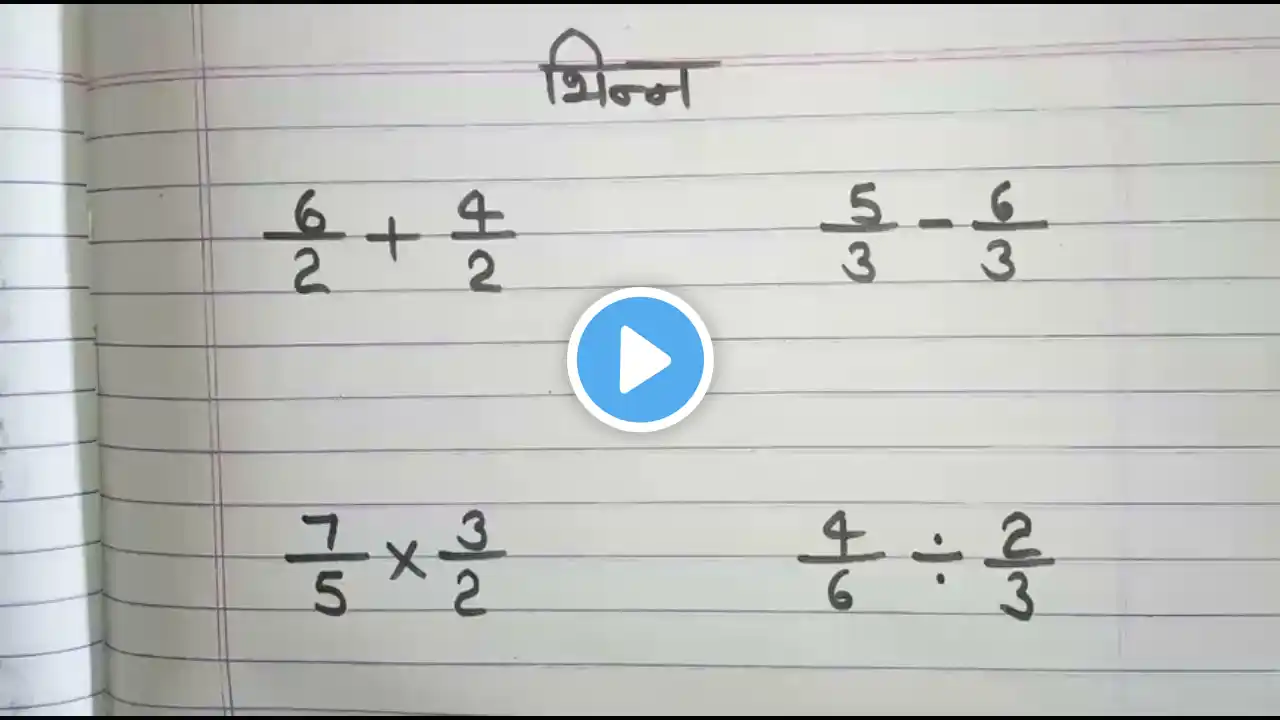 भिन्न
6/2 + 4/2
5/3 - 6/3
7/5 × 3/2
4/6 ÷ 2/3